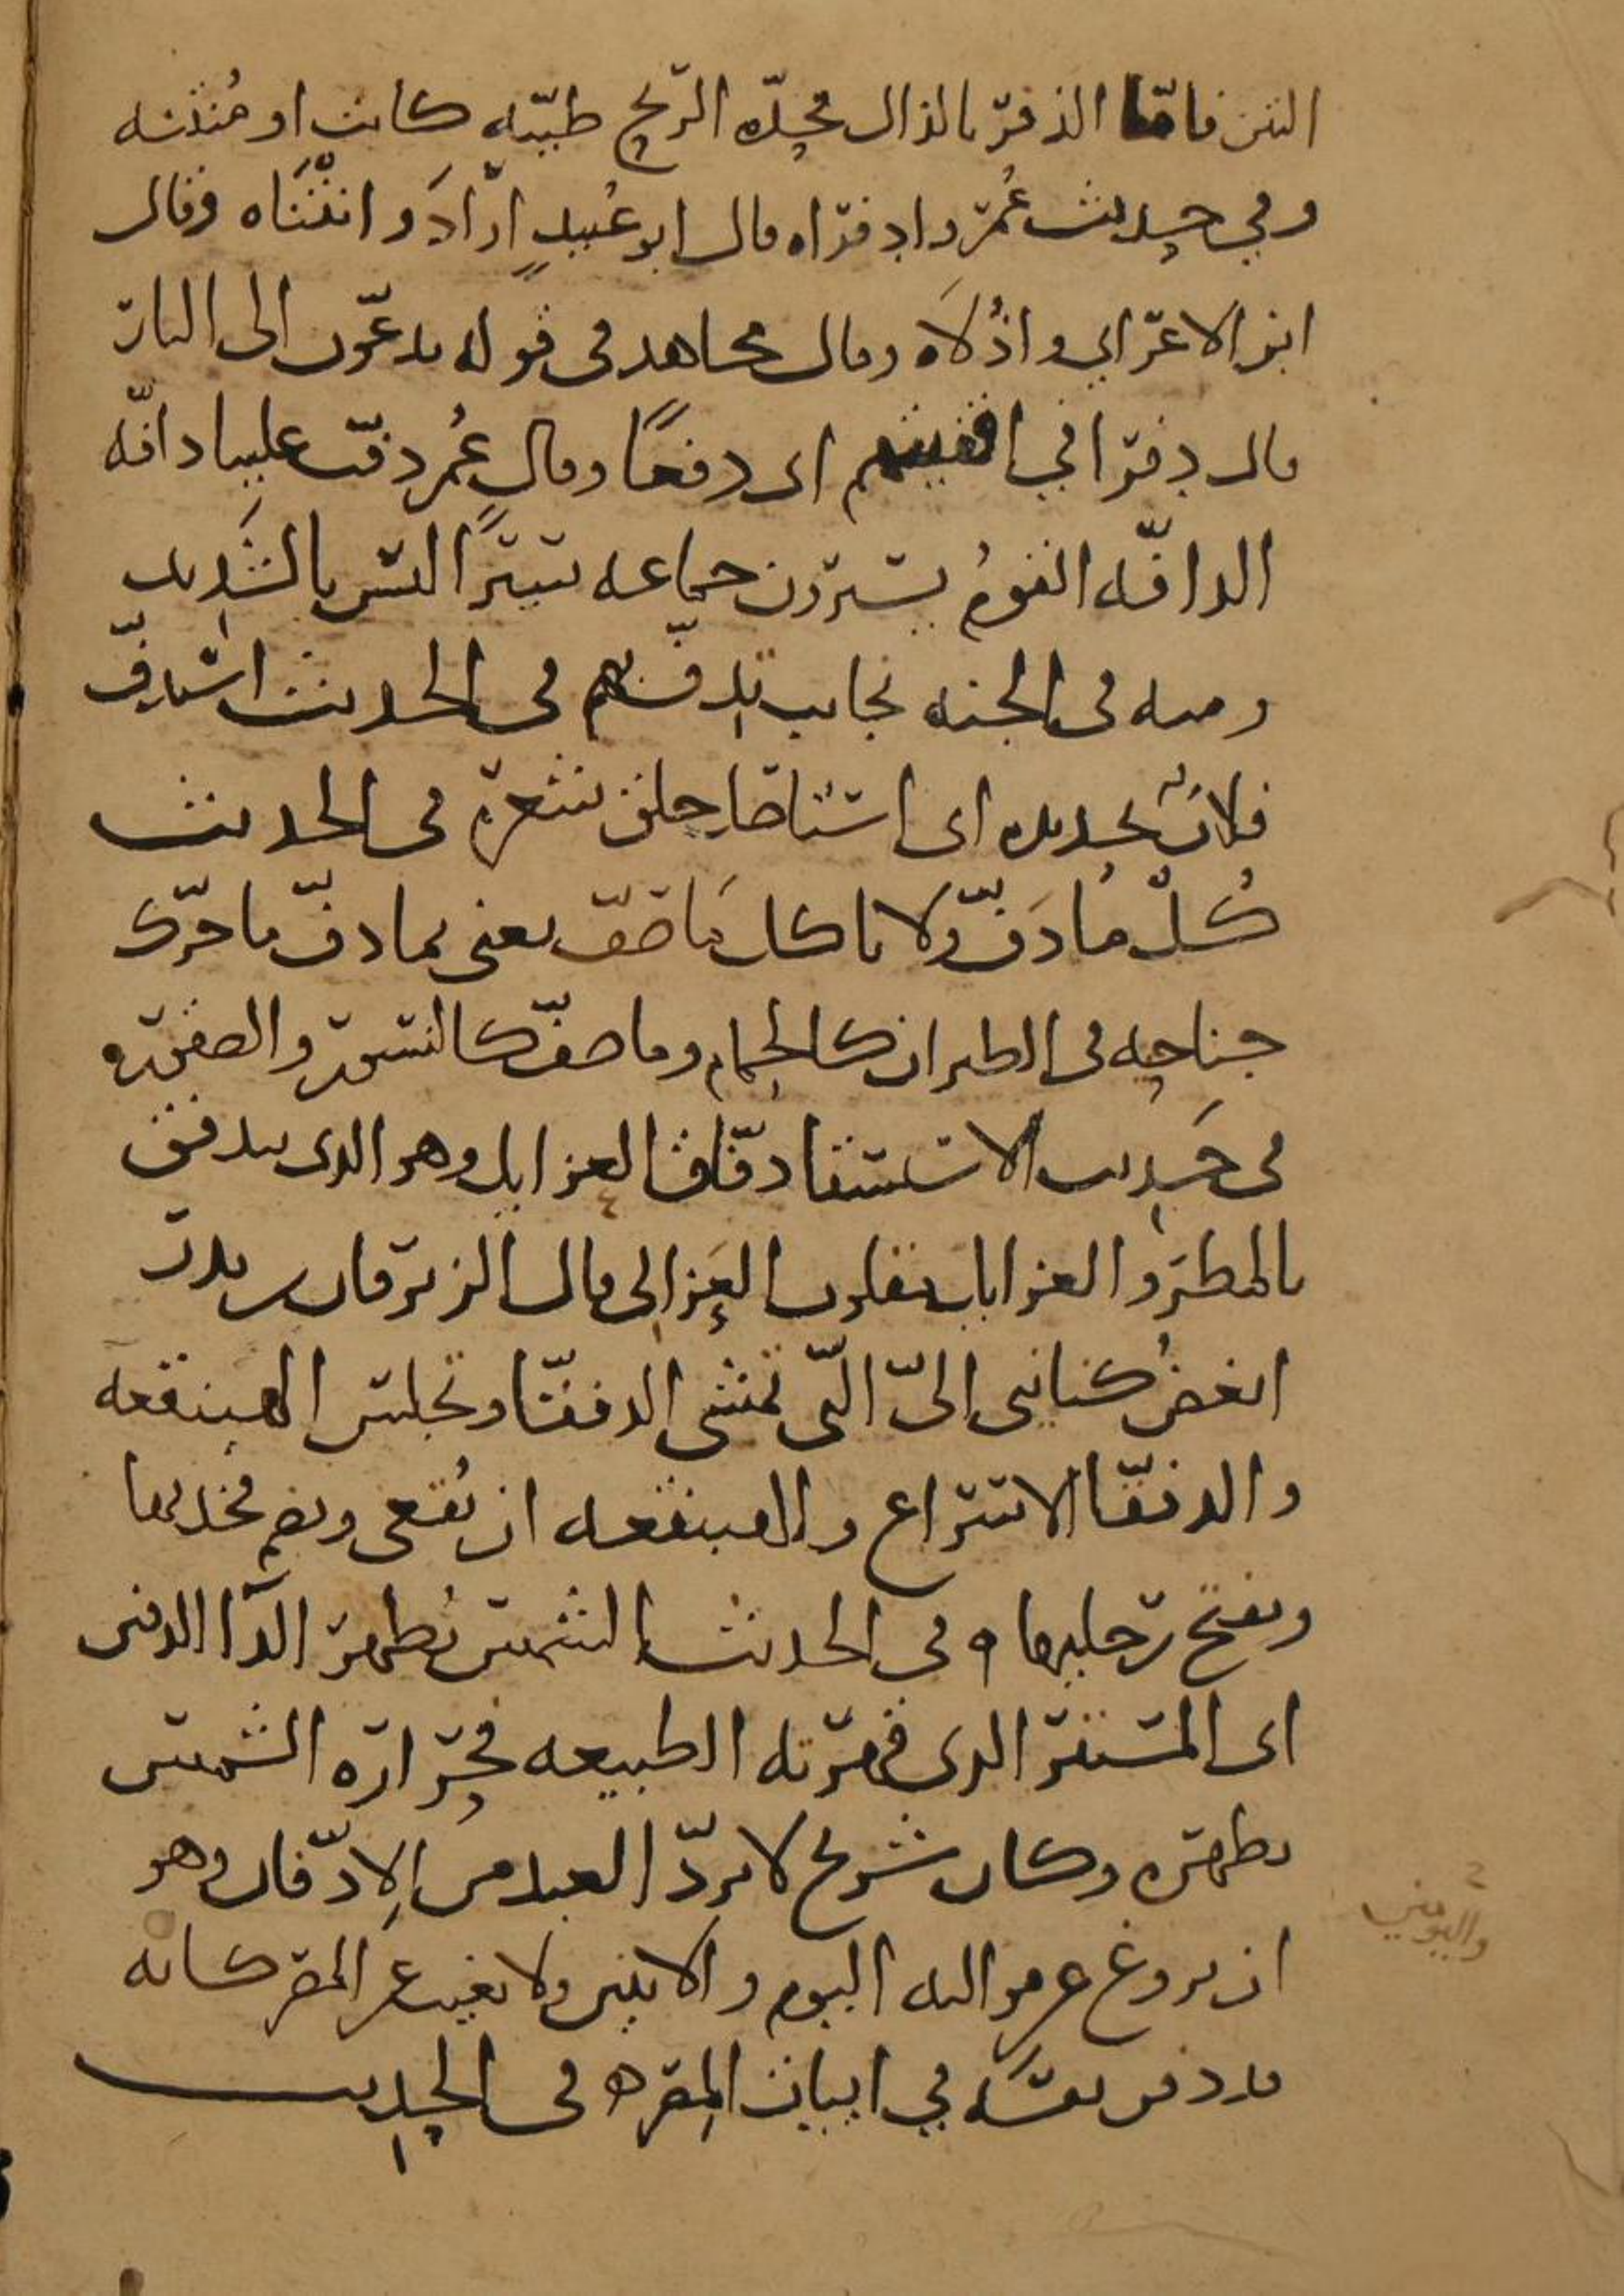 النتن فامّا الذفر بالذال فحِدّه الرّيح طيّبه كانت او مُنتنه
وفي حديث عُمر وادفراه قال ابو عُبيدٍ ارادَ وانتناه وقال
ابن الاعرابي واذُلاه وقال مجاهد في قوله يدعّون الى النار
قال دفرا في اقفيتهم اى دفعًا وقال عُمر دفّت علينا دافّه
الدافّه القومُ يسيرون جماعه سيرًا ليس بالشَديد
ومنه في الجنه نجايب تدفّ بهم في الحديث استدفّ
فلانٌ بحديده اى استاصل حلق شعره في الحديث
كُلْ مَا دَفّ ولا تاكل مَا صَفّ يعنى بما دفّ ما حرّك
جناحيه في الطيران كالحمام وما صفّ كالنسور والصقوره
في حَديث الاستسقا دفّاق العزايل وهو الذى يندفق
بالمطرَ والعزايل مقلوب العَزالى قال الزبرقان بن بدر
ابغضُ كناينى الىّ التى تمشى الدفقّا وتجلس الهبنقعه
والدفقّا الاسراع والهبنقعه ان تُقعى وتضم فخديها
وتفتح رجليها ٩ في الحديث الشمس تُظهر الدّا الدفين
اى المستتر الذى قهرته الطبيعه فحرّاره الشمس
تظهره وكان شريح لا يردّ العبد من الادّفان وهو
ان يروغ عن مواليه اليوم والاثنين ولا يغيب عن المصر كانه
يدفن نفسَه في ابيات المصره في الحديث
واليومين